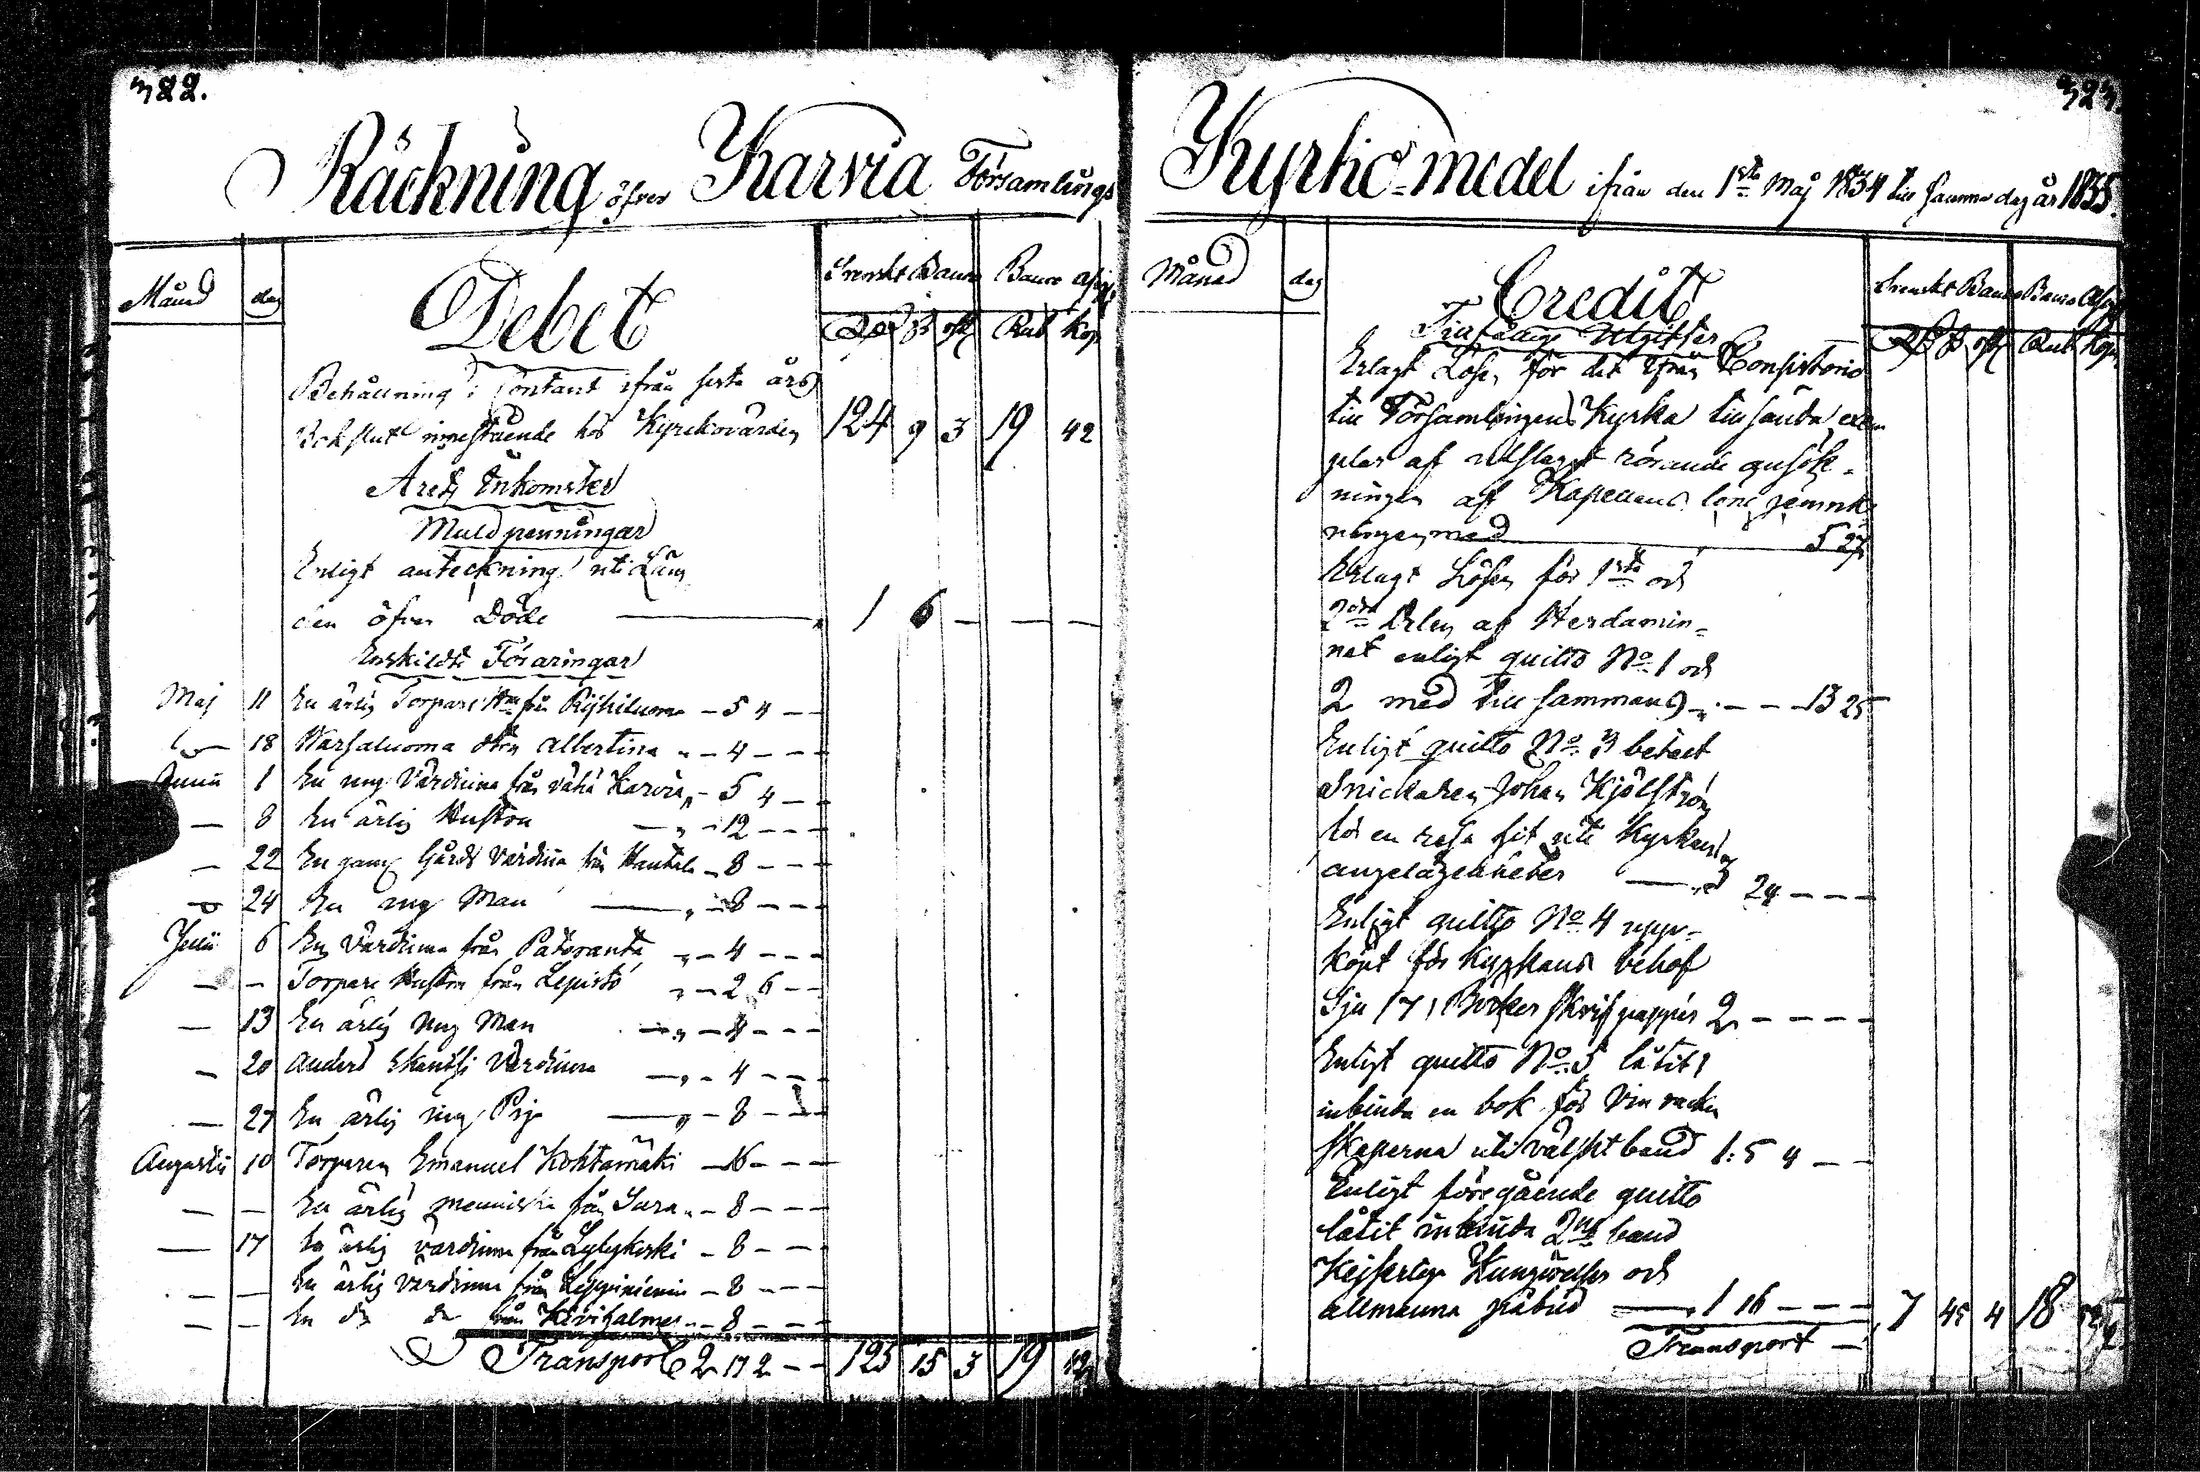 322.
Räckning öfver Karvia Församlings
Månad dag Debet Svenskt Banco Banco Assig:
Rd ß rst Rub kop
Behållning i Contant ifrån sista års
Bokslut innestående hos Kyrckovärden 124 9 3 19 42
Årets Inkomster
Muldpenningar
Enligt anteckning uti Läng
den öfver Döde — 1 6 — — —
Enskildte Föräringar
Maj 11 En ärlig Torpare Hu från — 5 4 — —
— 18 Warsaluoma Albertina „ — 4 — — —
Junii 1 En ung Värdinna från Vähä Karvia „ — 5 4 — —
— 8 En ärlig Hustru — „ — 12 — — —
— 22 En gam Gårds Värdinna från — 8 — — —
— 24 En ung Man — „ — 8 — — —
Julii 6 En Värdinna från Patoranta „ — 4 — — —
— — Torpare Hustru från Lepistö „ — 2 6 — —
— 13 En ärlig ung Man — „ — 4 — — —
— 20 Anders Skantsi Värdinna — „ — 4 — — —
— 27 En ärlig ung Pig — „ — 8 — — —
Augusti 10 Torparen Emanuel Kohtamäki — 16 — — —
— — En ärlig menniska från Sara „ — 8 — — —
— 17 En ärlig värdinna från Lylykoski — 8 — — —
— — En ärlig värdinna från — 8 — — —
— — En do do från „ — 8 — — —
Transport 2 17 2 — — 125 15 3 19 42
323.
Kyrkio-medel ifrån den 1sta Maj 1834 till samma dag år 1835.
Månad dag Credit Svenskt Banco Banco Assig
Rd ß rst Rub kop
Utgifter
Erlagt Lösen för det ifrån Consistorio
till Församlingens Kyrka till sända exem
plar af utslaget rörande ansök-
ningen af Kapellans löne jemnk
ningen, med — 5 27
Erlagt Lösen för 1sta och
2dra Delen af Herdamin-
net enligt quitto No 1 och
2 med till sammans „ — — — 13 25
Enligt quitto No 3 betalt
Snickaren Johan Kjölström
för en resa hit uti Kyrkans
angelägenheter — „ 24 — — —
Enligt quitto No 4 upp-
köpt för Kyrkans behof
Sju (7) Böcker skrifpapper 2 — — — —
Enligt quitto No 5 låtit
inbinda en bok för Vin räcken
skaperna uti välskt band 1: 5 4 — —
Enligt föregående quitto
låtit inbinda 2ne band
Kejserliga Kungörelser och
allmänna påbud — „ 1 16 — — — 7 45 4 18 52
Transport —